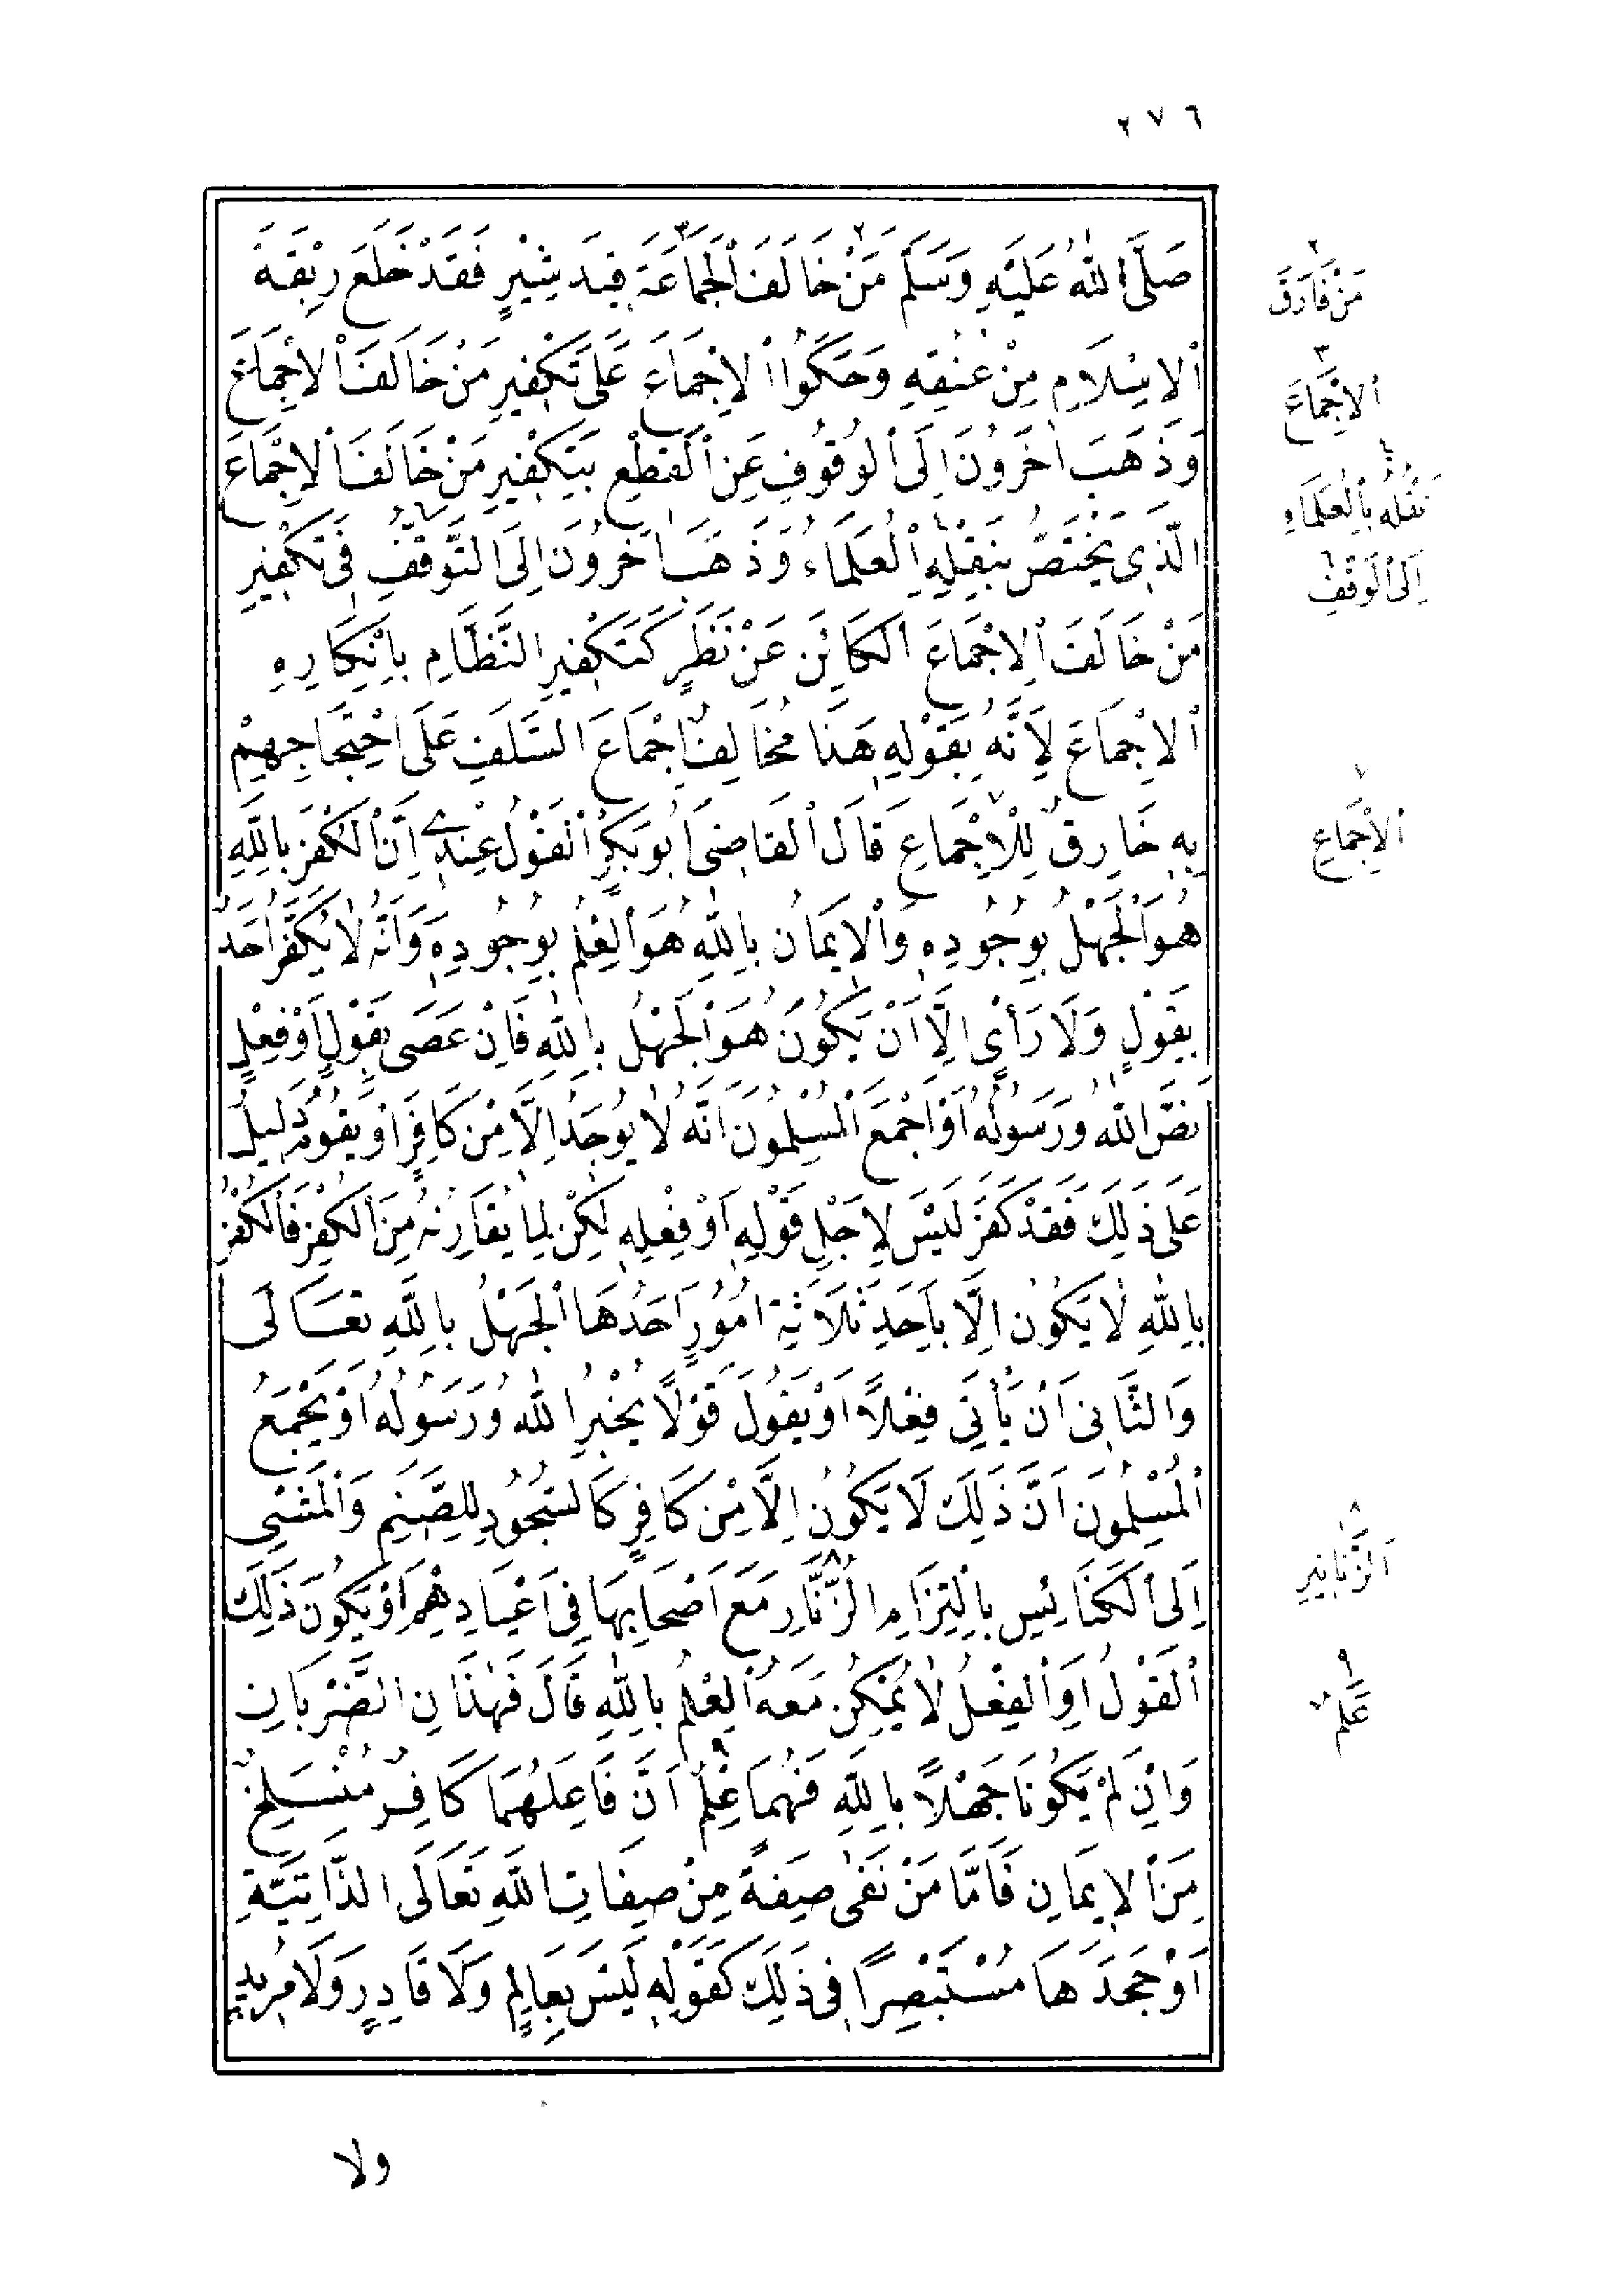 ٢٧٦
صَلَّى اللهُ عَلَيْهِ وَسَلَّمَ مَنْ خَالَفَ الْجَمَاعَةَ قِيدَ شِبْرٍ فَقَدْ خَلَعَ رِبْقَةَ
الْاِسْلَامِ مِنْ عُنُقِهِ وَحَكَوُا الْاِجْمَاعَ عَلَى تَكْفِيرِ مَنْ خَالَفَ الْاِجْمَاعَ
وَذَهَبَ اٰخَرُونَ اِلَى الْوُقُوفِ عَنِ الْقَطْعِ بِتَكْفِيرِ مَنْ خَالَفَ الْاِجْمَاعَ
الَّذِى يَخْتَصُّ بِنَقْلِهِ الْعُلَمَاءُ وَذَهَبَ اٰخَرُونَ اِلَى التَّوَقُّفِ فِى تَكْفِيرِ
مَنْ خَالَفَ الْاِجْمَاعَ الْكَائِنَ عَنْ نَظَرٍ كَتَكْفِيرِ النَّظَّامِ بِاِنْكَارِهِ
الْاِجْمَاعَ لِاَنَّهُ بِقَوْلِهِ هَذَا مُخَالِفٌ اِجْمَاعَ السَّلَفِ عَلَى احْتِجَاجِهِمْ
بِهِ خَارِقٌ لِلْاِجْمَاعِ قَالَ الْقَاضِى اَبُو بَكْرٍ الْقَوْلُ عِنْدِى اِنَّ الْكُفْرَ بِاللَّهِ
هُوَ الْجَهْلُ بِوُجُودِهِ وَالْاِيمَانُ بِاللهِ هُوَ الْعِلْمُ بِوُجُودِهِ وَاَنَّهُ لَا يُكَفَّرُ اَحَدٌ
بِقَوْلٍ وَلَا رَأْىٍ اِلَّا اَنْ يَكُونَ هُوَ الْجَهْلُ بِاللهِ فَاِنْ عَصَى بِقَوْلٍ اَوْ فِعْلٍ
نَصَّ اللهُ وَرَسُولُهُ اَوْ اَجْمَعَ الْمُسْلِمُونَ اَنَّهُ لَا يُوجَدُ اِلَّا مِنْ كَافِرٍ اَوْ يَقُومُ دَلِيلٌ
عَلَى ذَلِكَ فَقَدْ كَفَرَ لَيْسَ لِاَجْلِ قَوْلِهِ اَوْ فِعْلِهِ لَكِنْ لِمَا يُقَارِنُهُ مِنَ الْكُفْرِ فَالْكُفْرُ
بِاللهِ لَا يَكُونُ اِلَّا بِاَحَدِ ثَلَاثَةِ اُمُورٍ اَحَدُهَا الْجَهْلُ بِاللَّهِ تَعَالَى
وَالثَّانِى اَنْ يَأْتِىَ فِعْلًا اَوْ يَقُولَ قَوْلًا يُخْبِرُ اللهُ وَرَسُولُهُ اَوْ يُجْمِعُ
الْمُسْلِمُونَ اَنَّ ذَلِكَ لَا يَكُونُ اِلَّا مِنْ كَافِرٍ كَالسُّجُودِ لِلصَّنَمِ وَالْمَشْىِ
اِلَى الْكَنَائِسِ بِالْتِزَامِ الزُّنَّارِ مَعَ اَصْحَابِهَا فِى اَعْيَادِهِمْ اَوْ يَكُونَ ذَلِكَ
الْقَوْلُ اَوِ الْفِعْلُ لَا يُمْكِنُ مَعَهُ الْعِلْمُ بِاللهِ قَالَ فَهٰذَانِ الضَّرْبَانِ
وَاِنْ لَمْ يَكُونَا جَهْلًا بِاللَّهِ فَهُمَا عِلْمٌ اَنَّ فَاعِلَهُمَا كَافِرٌ مُنْسَلِخٌ
مِنَ الْاِيمَانِ فَاَمَّا مَنْ نَفٰى صِفَةً مِنْ صِفَاتِ اللَّهِ تَعَالَى الذَّاتِيَّةِ
اَوْ جَحَدَهَا مُسْتَبْصِرًا فِى ذَلِكَ كَقَوْلِهِ لَيْسَ بِعَالِمٍ وَلَا قَادِرٍ وَلَا مُرِيدٍ
٢
مَنْ فَارَقَ
٣
الْاِجْمَاعَ
نَقْلَهُ بِالْعُلَمَاءِ
٦
اِلَى الْوَقْفِ
٧
الْاِجْمَاعِ
٨
الزَّنَانِيرِ
٩
عَلَمٌ
ولا